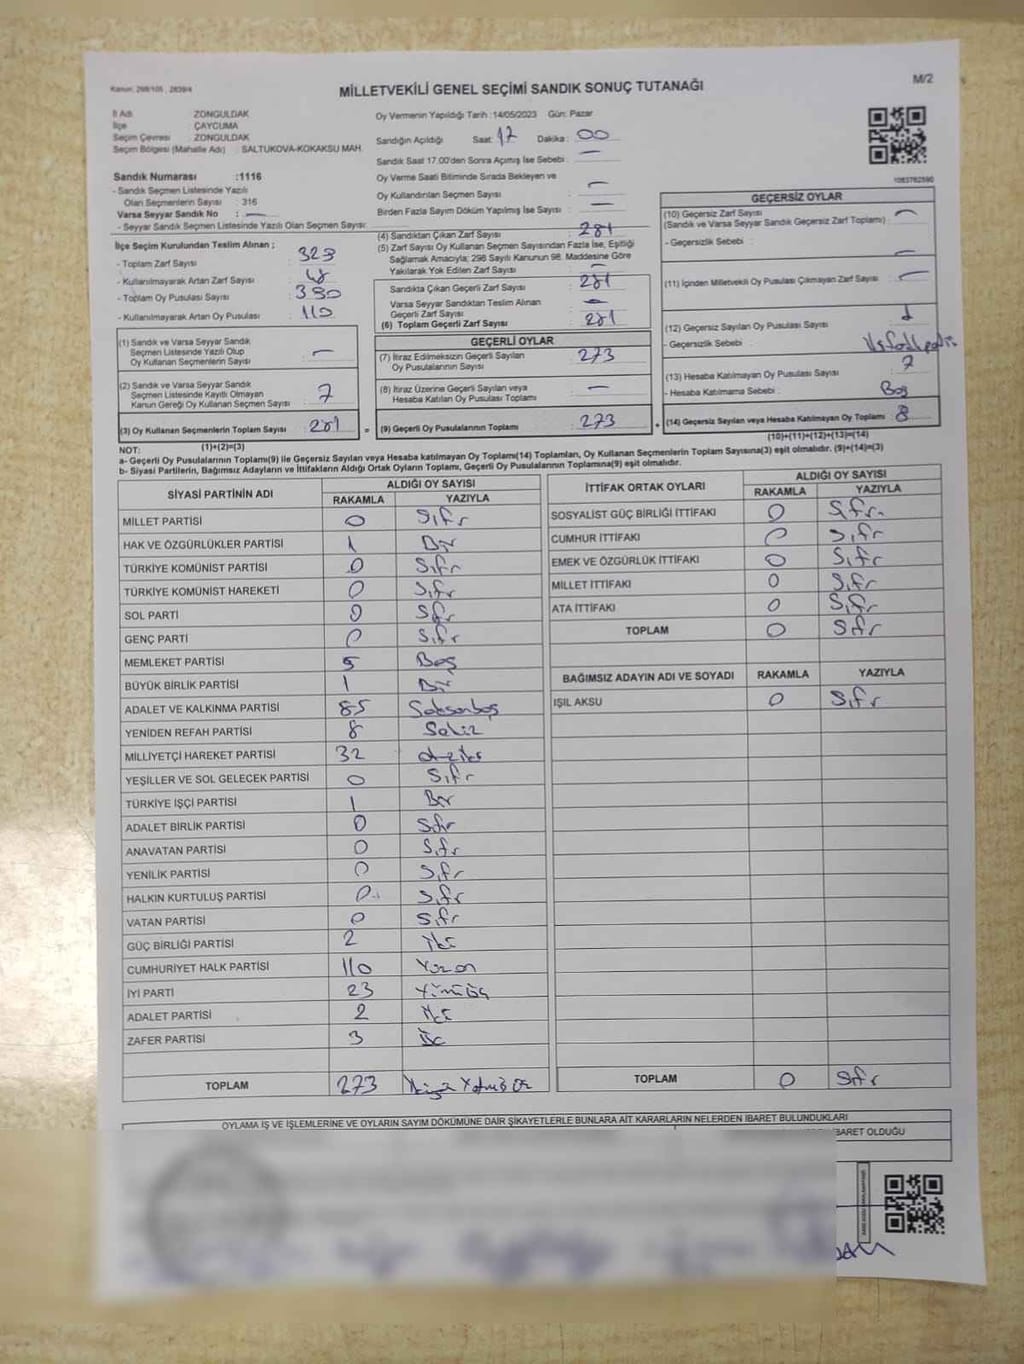 Kanun: 298/105 , 2839/4
MİLLETVEKİLİ GENEL SEÇİMİ SANDIK SONUÇ TUTANAĞI
M/2
İl Adı : ZONGULDAK
İlçe : ÇAYCUMA
Seçim Çevresi : ZONGULDAK
Seçim Bölgesi (Mahalle Adı) : SALTUKOVA-KOKAKSU MAH.
Oy Vermenin Yapıldığı Tarih :14/05/2023 Gün: Pazar
Sandığın Açıldığı Saat: 17 Dakika : 00
Sandık Saat 17.00'den Sonra Açımış İse Sebebi : —
Oy Verme Saati Bitiminde Sırada Bekleyen ve
Oy Kullandırılan Seçmen Sayısı : —
Birden Fazla Sayım Dökümü Yapılmış İse Sayısı : —
Sandık Numarası :1116
- Sandık Seçmen Listesinde Yazılı
Olan Seçmenlerin Sayısı : 316
Varsa Seyyar Sandık No : —
- Seyyar Sandık Seçmen Listesinde Yazılı Olan Seçmen Sayısı:
İlçe Seçim Kurulundan Teslim Alınan ;
- Toplam Zarf Sayısı : 323
- Kullanılmayarak Artan Zarf Sayısı :
- Toplam Oy Pusulası Sayısı : 390
- Kullanılmayarak Artan Oy Pusulası : 110
(1) Sandık ve Varsa Seyyar Sandık
Seçmen Listesinde Yazılı Olup
Oy Kullanan Seçmenlerin Sayısı : —
(2) Sandık ve Varsa Seyyar Sandık
Seçmen Listesinde Kayıtlı Olmayan
Kanun Gereği Oy Kullanan Seçmen Sayısı : 7
(3) Oy Kullanan Seçmenlerin Toplam Sayısı : 281
(4) Sandıktan Çıkan Zarf Sayısı : 281
(5) Zarf Sayısı Oy Kullanan Seçmen Sayısından Fazla İse, Eşitliği
Sağlamak Amacıyla; 298 Sayılı Kanunun 98. Maddesine Göre
Yakılarak Yok Edilen Zarf Sayısı : —
Sandıkta Çıkan Geçerli Zarf Sayısı : 281
Varsa Seyyar Sandıktan Teslim Alınan
Geçerli Zarf Sayısı : —
(6) Toplam Geçerli Zarf Sayısı : 281
GEÇERLİ OYLAR
(7) İtiraz Edilmeksizin Geçerli Sayılan
Oy Pusulalarının Sayısı : 273
(8) İtiraz Üzerine Geçerli Sayılan veya
Hesaba Katılan Oy Pusulası Toplamı : —
= (9) Geçerli Oy Pusulalarının Toplamı : 273
1083762590
GEÇERSİZ OYLAR
(10) Geçersiz Zarf Sayısı
(Sandık ve Varsa Seyyar Sandık Geçersiz Zarf Toplamı) : —
- Geçersizlik Sebebi : —
(11) İçinden Milletvekili Oy Pusulası Çıkmayan Zarf Sayısı : —
(12) Geçersiz Sayılan Oy Pusulası Sayısı : 1
- Geçersizlik Sebebi :
(13) Hesaba Katılmayan Oy Pusulası Sayısı : 7
- Hesaba Katılmama Sebebi : Boş
+ (14) Geçersiz Sayılan veya Hesaba Katılmayan Oy Toplamı : 8
NOT: (1)+(2)=(3)
(10)+(11)+(12)+(13)=(14)
a- Geçerli Oy Pusulalarının Toplamı(9) ile Geçersiz Sayılan veya Hesaba katılmayan Oy Toplamı(14) Toplamları, Oy Kullanan Seçmenlerin Toplam Sayısına(3) eşit olmalıdır. (9)+(14)=(3)
b- Siyasi Partilerin, Bağımsız Adayların ve İttifakların Aldığı Ortak Oyların Toplamı, Geçerli Oy Pusulalarının Toplamına(9) eşit olmalıdır.
SİYASİ PARTİNİN ADI
ALDIĞI OY SAYISI
RAKAMLA YAZIYLA
MİLLET PARTİSİ 0 Sıfır
HAK VE ÖZGÜRLÜKLER PARTİSİ 1 Bir
TÜRKİYE KOMÜNİST PARTİSİ 0 Sıfır
TÜRKİYE KOMÜNİST HAREKETİ 0 Sıfır
SOL PARTİ 0 Sıfır
GENÇ PARTİ 0 Sıfır
MEMLEKET PARTİSİ 5 Beş
BÜYÜK BİRLİK PARTİSİ 1 Bir
ADALET VE KALKINMA PARTİSİ 85 Seksenbeş
YENİDEN REFAH PARTİSİ 8 Sekiz
MİLLİYETÇİ HAREKET PARTİSİ 32 otuziki
YEŞİLLER VE SOL GELECEK PARTİSİ 0 Sıfır
TÜRKİYE İŞÇİ PARTİSİ 1 Bir
ADALET BİRLİK PARTİSİ 0 Sıfır
ANAVATAN PARTİSİ 0 Sıfır
YENİLİK PARTİSİ 0 Sıfır
HALKIN KURTULUŞ PARTİSİ 0 Sıfır
VATAN PARTİSİ 0 Sıfır
GÜÇ BİRLİĞİ PARTİSİ 2 İki
CUMHURİYET HALK PARTİSİ 110 Yüzon
İYİ PARTİ 23 Yirmiüç
ADALET PARTİSİ 2 İki
ZAFER PARTİSİ 3 Üç
TOPLAM 273 İkiyüz Yetmiş Üç
İTTİFAK ORTAK OYLARI
ALDIĞI OY SAYISI
RAKAMLA YAZIYLA
SOSYALİST GÜÇ BİRLİĞİ İTTİFAKI 0 Sıfır
CUMHUR İTTİFAKI 0 Sıfır
EMEK VE ÖZGÜRLÜK İTTİFAKI 0 Sıfır
MİLLET İTTİFAKI 0 Sıfır
ATA İTTİFAKI 0 Sıfır
TOPLAM 0 Sıfır
BAĞIMSIZ ADAYIN ADI VE SOYADI RAKAMLA YAZIYLA
IŞIL AKSU 0 Sıfır
TOPLAM 0 Sıfır
OYLAMA İŞ VE İŞLEMLERİNE VE OYLARIN SAYIM DÖKÜMÜNE DAİR ŞİKAYETLERLE BUNLARA AİT KARARLARIN NELERDEN İBARET BULUNDUKLARI
İBARET OLDUĞU